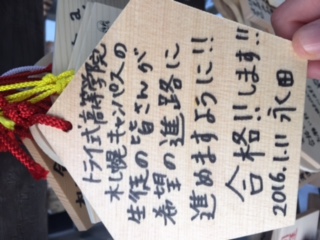 トライ式高等学院
札幌キャンパスの
生徒の皆さんが
希望の進路に
進めますように!!
合格!!します!!
2016.1.11 永田